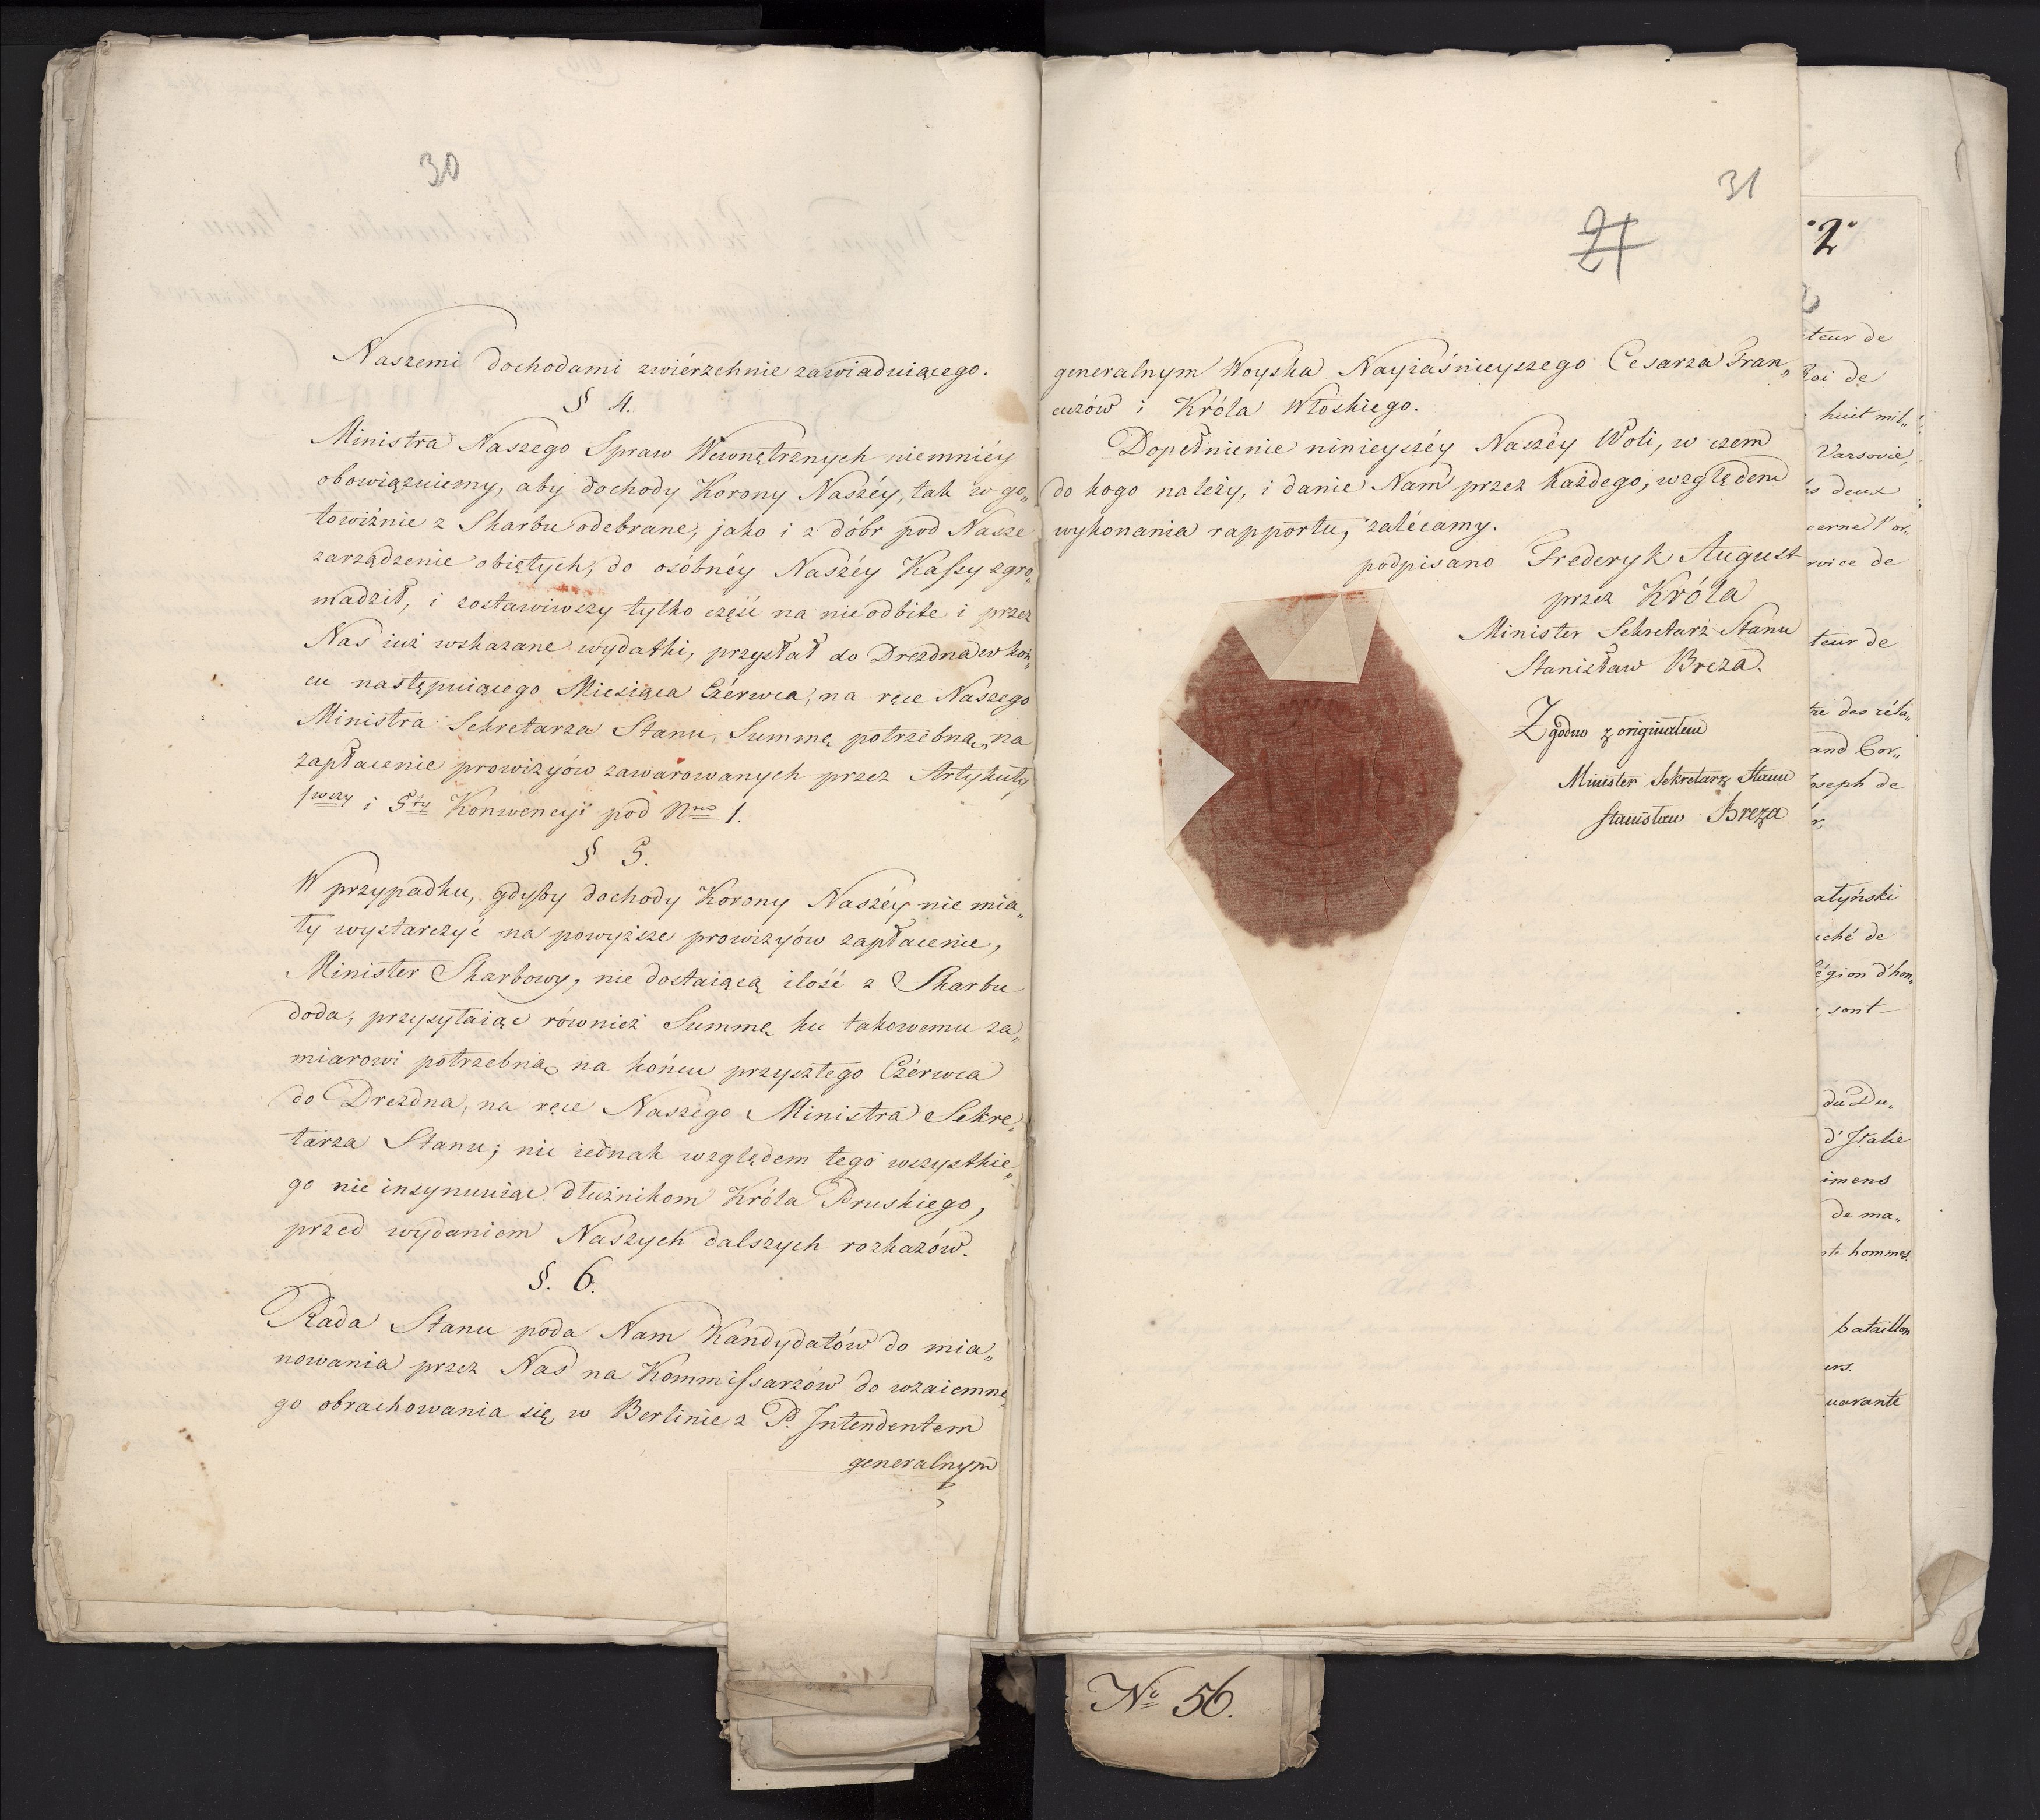 30
Naszemi dochodami zwiérzchnie zawiaduiącego.
§ 4.
Ministra Naszego Spraw Wewnętrznych niemniéy
obowiązuiemy, aby dochody Korony Naszéy, tak w go„
towiźnie z Skarbu odebrane, jako i z dóbr pod Nasze
zarządzenie obiętych, do osóbnéy Naszéy Kassy zgro„
madził, i zostawiwszy tylko część na nieodbite i przez
Nas iuż wskazane wydatki, przysłał do Drezdna w koń„
cu następuiącego Miesiąca Czérwca, na ręce Naszego
Ministra Sekretarza Stanu, Summę potrzebną na
zapłacenie prowizyów zawarowanych przez Artykuły
1wszy i 5ty Konwencyi pod Nro 1.
§ 5.
W przypadku, gdyby dochody Korony Naszéy nie mia„
ły wystarczyć na powyższe prowizyów zapłacenie,
Minister Skarbowy, nie dostaiącą ilość z Skarbu
doda, przysyłaiąc również Summę ku takowemu za„
miarowi potrzebną na końcu przyszłego Czérwca
do Drezdna, na ręce Naszego Ministra Sekre„
tarza Stanu; nic iednak względem tego wszystkie„
go nie insynuuiąc dłużnikom Króla Pruskiego,
przed wydaniem Naszych dalszych rozkazów.
§. 6.
Rada Stanu poda Nam Kandydatów do mia„
nowania przez Nas na Kommissarzów do wzaiemne„
go obrachowania się w Berlinie z P. Intendentem
generalnym
31
21
generalnym Woyska Nayiaśnieyszego Cesarza Fran„
cuzów i Króla Włoskiego.
Dopełnienie ninieyszéy Naszéy Woli, w czem
do kogo należy, i danie Nam przez każdego, względem
wykonania rapportu, zalécamy.
podpisano Frederyk August
przez Króla
Minister Sekretarz Stanu
Stanisław Breza.
Zgodno z originałem
Minister Sekretarz Stanu
Stanisław Breza
No 56.
2
teur de
Roi de
huit mil„
Varsovie,
deux
cerne l'or„
rvice de
teur de
tre des réla„
and Cor„
oseph de
atyński
ché de
égion d'hon„
sont
du Du„
d'Italie
imens
de ma„
hommes
bataillon
ers.
uarante